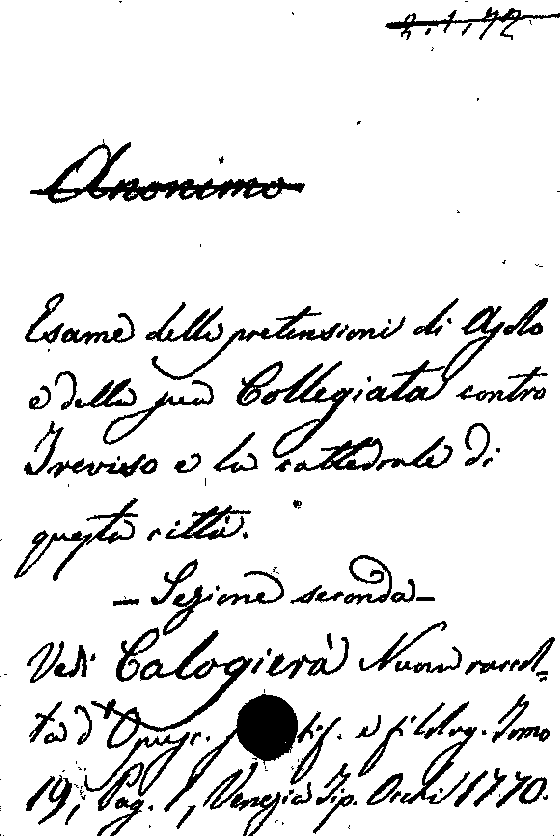 2.1.72
Anonimo
Esame delle pretensioni di Asolo
e della sua Collegiata contro
Treviso e la cattedrale di
questa città.
— Sezione seconda —
Vedi Calogierà Nuova raccol-
ta d'Opusc. filolog. Tomo
19, Pag. 1, Venezia Tip. Occhi 1770.